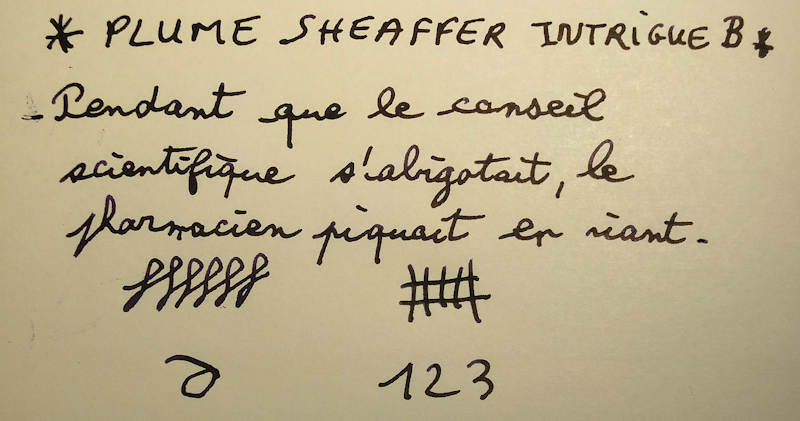 * PLUME SHEAFFER INTRIGUE B *
- Pendant que le conseil
scientifique s'abigotait, le
pharmacien piquait en riant.
123